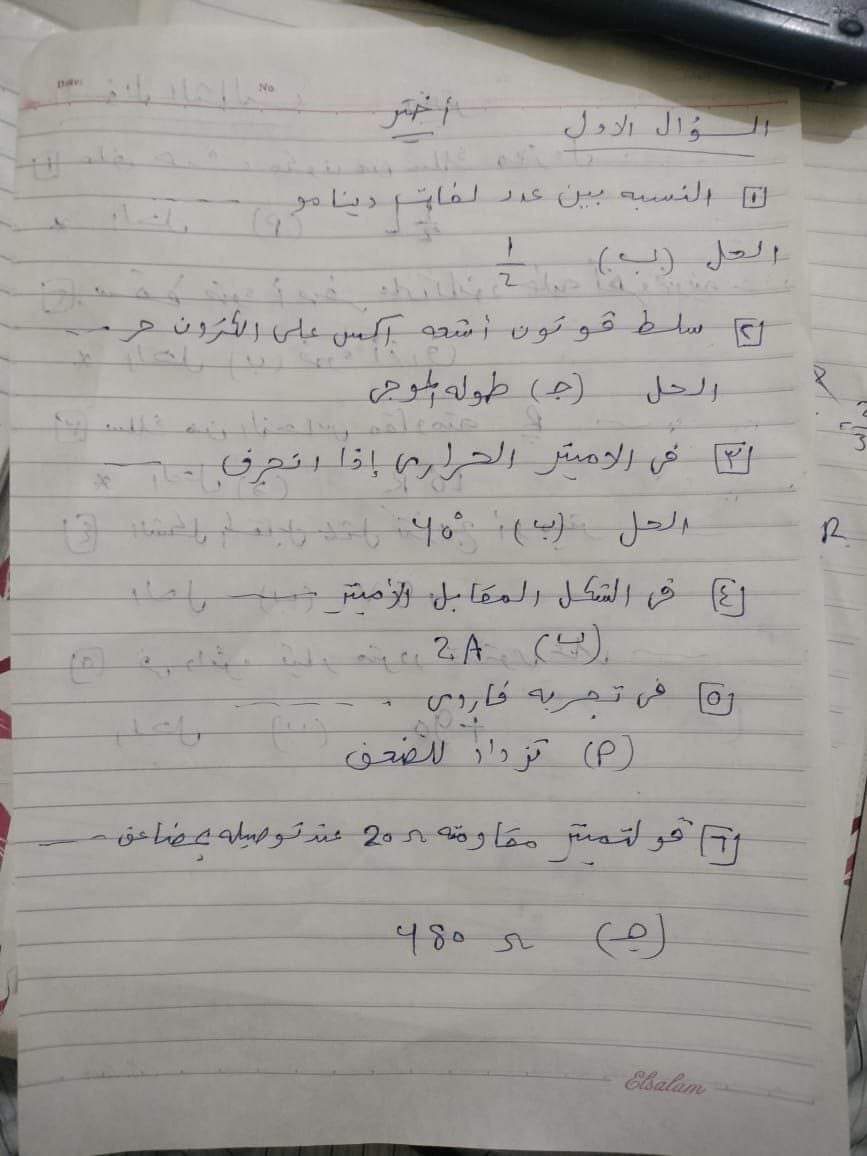 Date: No
أختر
السؤال الاول
[١] النسبه بين عدد لفات دينامو ----
الحل (ب) 1/2
[٢] سلط فوتون أشعه اكس على الكترون حر ----
الحل (ج) طوله الموجى
[٣] فى الاميتر الحرارى إذا انحرف ----
الحل (ب) 40°
[٤] فى الشكل المقابل الأميتر ----
(ب) 2A
[٥] فى تجربه فاردى . ----
(P) تزداد للضعف
[٦] فولتميتر مقاومته 20Ω عند توصيله بمضاعف ----
(ج) 480 Ω
Elsalam